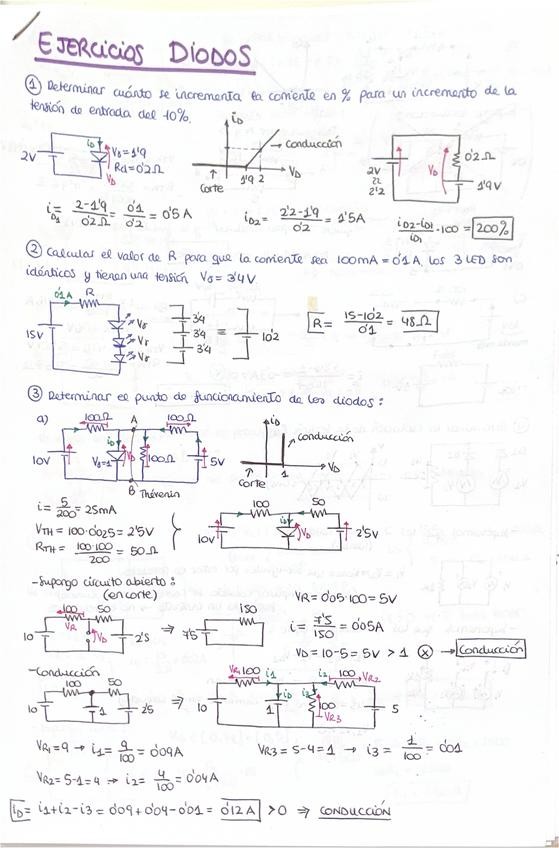 EJERCICIOS DIODOS
① Determinar cuánto se incrementa la corriente en % para un incremento de la
tensión de entrada del 10%.
2V
iD
Vγ=1'9
Rd=0'2Ω
VD
iD
conducción
corte
1'9 2
VD
2V
2'2
VD
0'2Ω
1'9V
iD1 = 2-1'9/0'2Ω = 0'1/0'2 = 0'5A
iD2 = 2'2-1'9/0'2 = 1'5A
iD2-iD1/iD1 · 100 = 200%
② Calcular el valor de R para que la corriente sea 100mA = 0'1A, los 3 LED son
idénticos y tienen una tensión Vγ = 3'4V.
0'1A R
15V
Vγ
Vγ
Vγ
3'4
3'4
3'4
=
10'2
R = 15-10'2/0'1 = 48Ω
③ Determinar el punto de funcionamiento de los diodos:
a)
100Ω A 100Ω
10V
Vγ=1
iD
VD
100Ω
5V
B Thévenin
iD
conducción
corte
1
VD
i = 5/200 = 25mA
VTH = 100·0'025 = 2'5V
RTH = 100·100/200 = 50Ω
100 50
10V
iD
VD
2'5V
-Supongo circuito abierto:
(en corte)
100 50
10
VR
VD
2'5
⇒
150
7'5
VR = 0'05·100 = 5V
i = 7'5/150 = 0'05A
VD = 10-5 = 5V > 1 ⊗ → Conducción
-Conducción
100 50
10
1
2'5
⇒
VR1 100 i1 i2 100 VR2
10
1
iD
i3
100
VR3
5
VR1 = 9 → i1 = 9/100 = 0'09A
VR3 = 5-4 = 1 → i3 = 1/100 = 0'01
VR2 = 5-1 = 4 → i2 = 4/100 = 0'04A
iD = i1+i2-i3 = 0'09+0'04-0'01 = 0'12A > 0 ⇒ CONDUCCIÓN